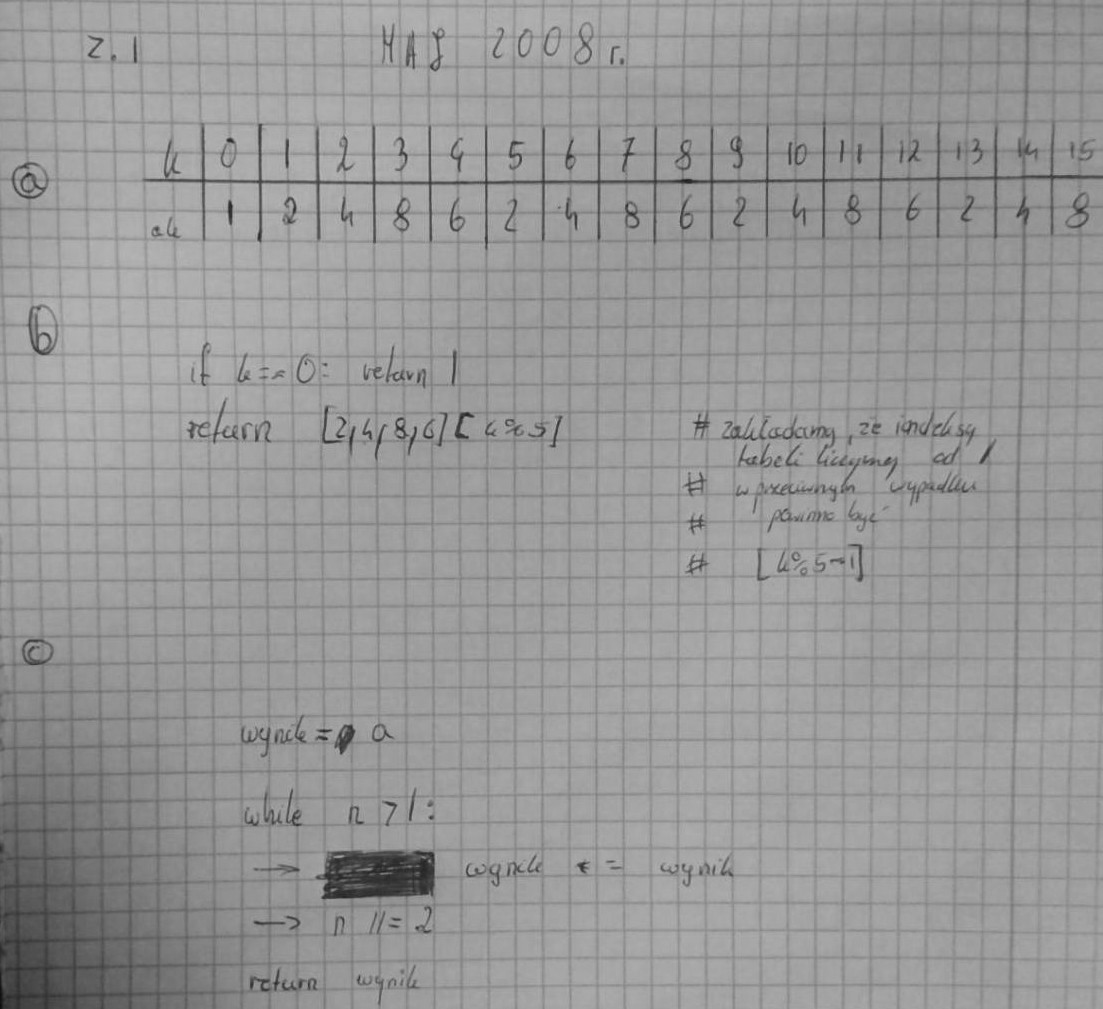 z.1 MAJ 2008 r.
a k 0 1 2 3 4 5 6 7 8 9 10 11 12 13 14 15
ak 1 2 4 8 6 2 4 8 6 2 4 8 6 2 4 8
b
if k == 0: return 1
return [2,4,8,6] [k%5] # zakładamy, że indeksy
tabeli liczymy od 1
# w przeciwnym wypadku
# powinno być
# [k%5-1]
c
wynik = a
while n > 1:
→ wynik *= wynik
→ n //= 2
return wynik